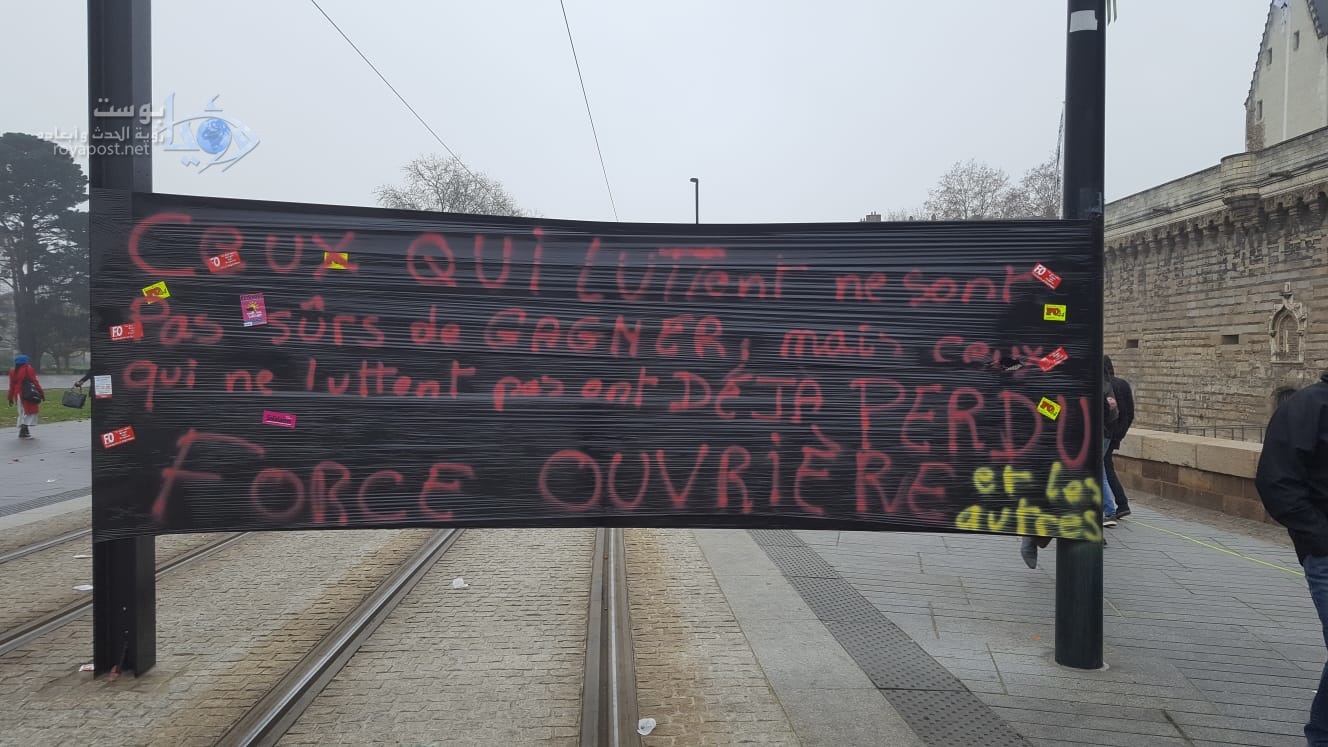 رؤيا بوست
رؤية الحدث و أبعاده
royapost.net
Ceux QUI LUTTent ne sont
Pas sûrs de GAGNER, mais ceux
qui ne luttent pas ont DÉJÀ PERDU
FORCE OUVRIÈRE et les
autres
FO
FO
FO